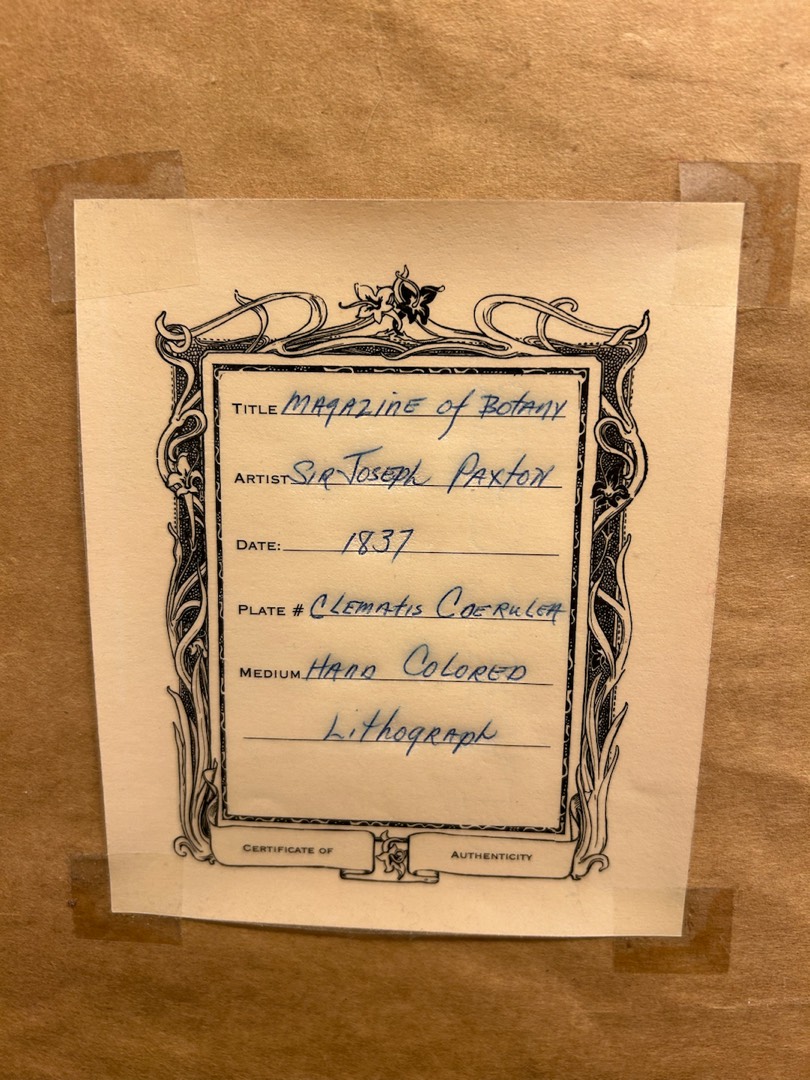 TITLE MAGAZINE of BOTANY
ARTIST SIR JOSEPH PAXTON
DATE: 1837
PLATE # CLEMATIS COERULEA
MEDIUM HAND COLORED
LITHOGRAPH
CERTIFICATE OF AUTHENTICITY